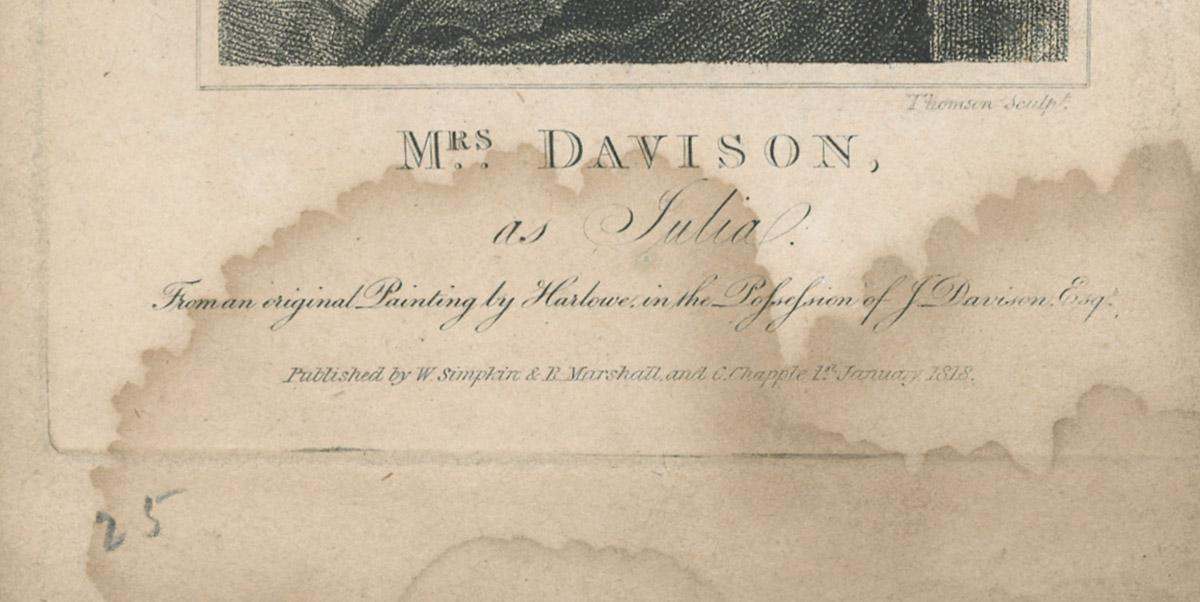 Thomson Sculpt.
MRS. DAVISON,
as Julia.
From an original Painting by Harlowe, in the Possession of J. Davison, Esqr.
Published by W. Simpkin & R. Marshall, and C. Chapple 1st January 1818.
25